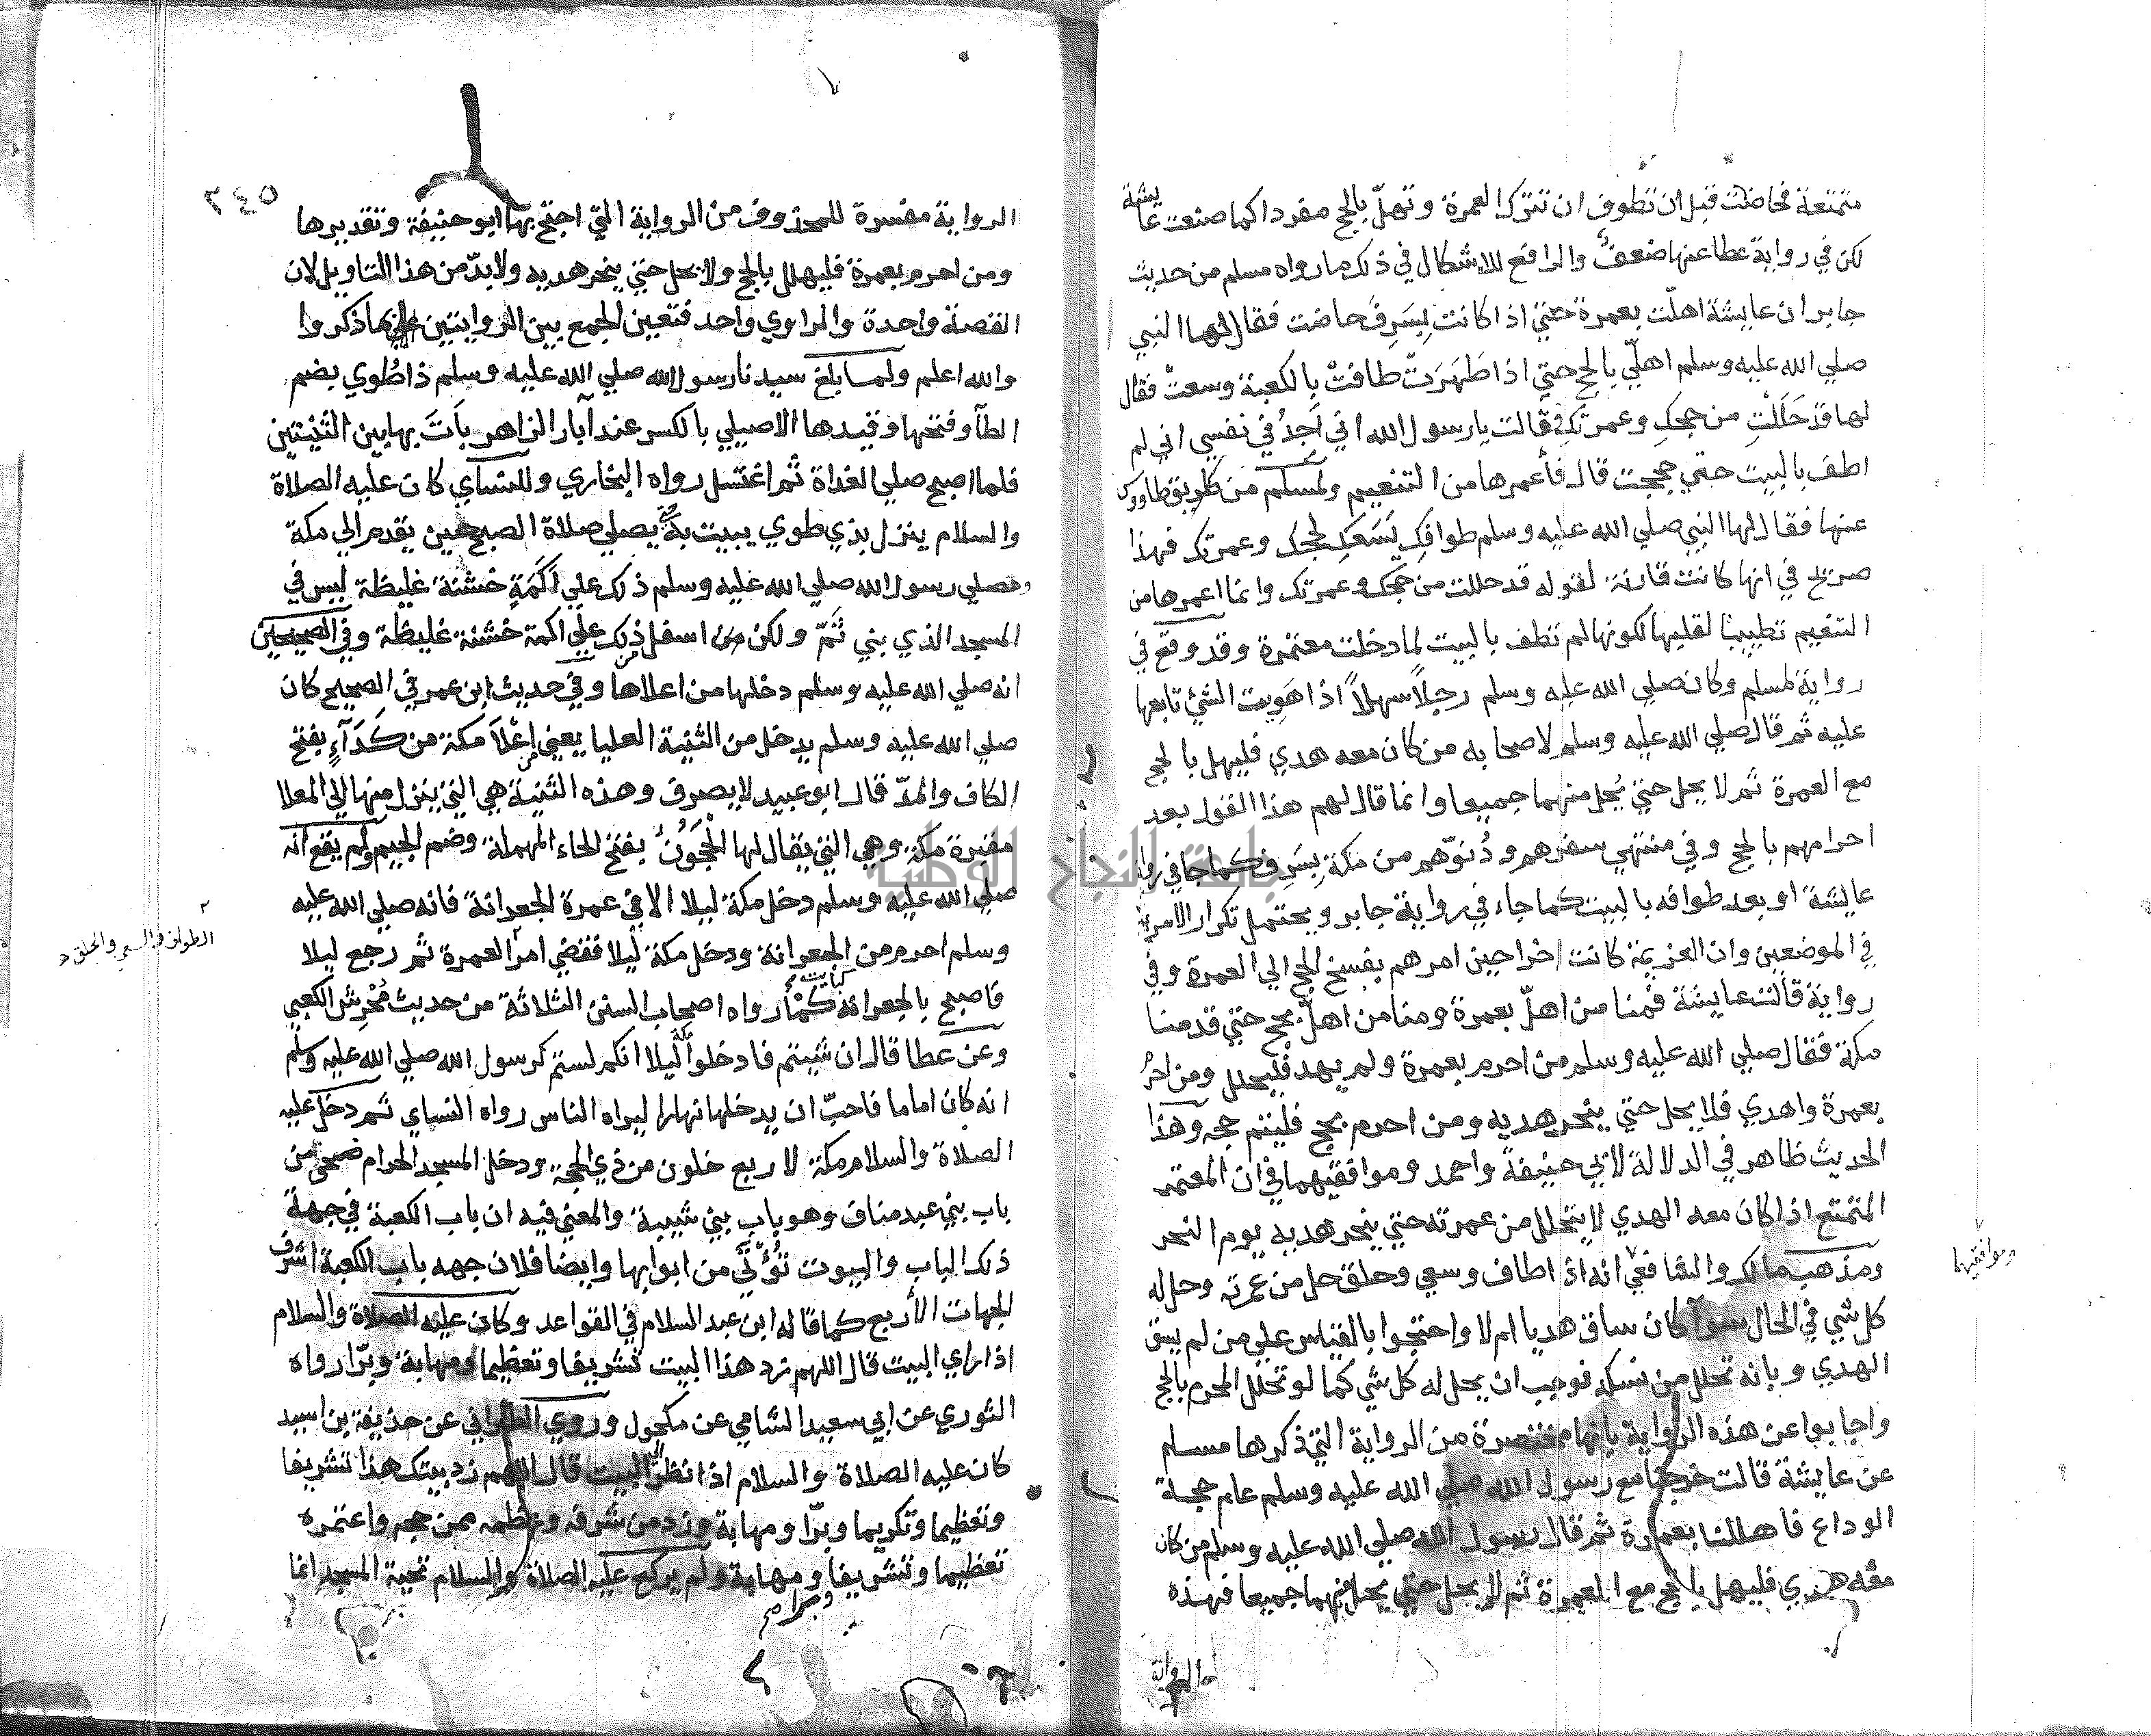 متمتعة فحاضت قبل ان تطوف ان تترك العمرة وتهلّ بالحج مفردا كما صنعت عايشة
لكن في رواية عطا عنها ضعف والرافع للاشكال في ذلك ما رواه مسلم من حديث
جابر ان عايشة اهلّت بعمرة حتي اذا كانت بِسَرِفَ حاضت فقال لها النبي
صلي الله عليه وسلم اهلّي بالحج حتي اذا طَهَرَتْ طافتْ بالكعبة وسعتْ فقال
لها قد حَلَلْتِ من حجكِ وعمرتكِ قالت يا رسول الله اني اَجدُ في نفسي اني لم
اطف بالبيت حتي حججت قال فأعمرها من التنعيم ولمسلم من طريق طاووس
عنها فقال لها النبي صلي الله عليه وسلم طوافكِ يَسَعكِ لحجك وعمرتك فهذا
صريح في انها كانت قارنة لقوله قد حللت من حجك وعمرتك وانما اعمرها من
التنعيم تطييبا لقلبها لكونها لم تطف بالبيت لما دخلت معتمرة وقد وقع في
رواية لمسلم وكان صلي الله عليه وسلم رجلاً سهلاً اذا هَوِيت الشئ تابعها
عليه ثم قال صلي الله عليه وسلم لاصحابه من كان معه هدي فليهل بالحج
مع العمرة ثم لا يحل حتي يُحل منهما جميعا وانما قال لهم هذا القول بعد
احرامهم بالحج وفي منتهي سفرهم ودُنوّهم من مكة بِسَرِف كما جا في رواية
عايشة او بعد طوافه بالبيت كما جاء في رواية جابر ويحتمل تكرار الامر
في الموضعين وان العزيمة كانت اخرا حين امرهم بفسخ الحج الي العمرة وفي
رواية قالت عايشة فمنا من اهلّ بعمرة ومنا من اهلّ بحج حتي قدمنا
مكة فقال صلي الله عليه وسلم من احرم بعمرة ولم يهد فليحلل ومن احرم
بعمرة واهدي فلا يحل حتي ينحر هديه ومن احرم بحج فليتم حجه وهذا
الحديث ظاهر في الدلالة لابي حنيفة واحمد وموافقيهما في ان المعتمر
المتمتع اذا كان معه الهدي لا يتحلل من عمرته حتي ينحر هديه يوم النحر
ومذهب مالك والشافعي انه اذا طاف وسعي وحلق حل من عمرته وحل له
كل شي في الحال سوآ كان ساق هديا ام لا واحتجوا بالقياس علي من لم يسق
الهدي وبانه تحلل من نسكه فوجب ان يحل له كل شي كما لو تحلل المحرم بالحج
واجابوا عن هذه الرواية بانها مختصرة من الرواية التي ذكرها مسلم
عن عايشة قالت خرجنا مع رسول الله صلي الله عليه وسلم عام حجة
الوداع فاهللنا بعمرة ثم قال رسول الله صلي الله عليه وسلم من كان
معه هدي فليهل بالحج مع العمرة ثم لا يحل حتي يحل منهما جميعا فهذه
الرواية
وموافقيهما
٢٤٥
الرواية مفسرة للمحذوف من الرواية التي احتج بها ابو حنيفة وتقديرها
ومن احرم بعمرة فليهلل بالحج ولا يحل حتي ينحر هديه ولا بدّ من هذا التاويل لان
القصة واحدة والراوي واحد فتعين الجمع بين الروايتين بما ذكروا
والله اعلم ولما بلغ سيدنا رسول الله صلي الله عليه وسلم ذا طُوي بضم
الطآ وفتحها وقيدها الاصيلي بالكسر عند آبار الزاهر باَتَ بها بين الثنيتين
فلما اصبح صلي الغداة ثم اغتسل رواه البخاري وللنساي كان عليه الصلاة
والسلام ينزل بذي طوي يبيت به يصلي صلاة الصبح حين يقدم الي مكة
ومصلي رسول الله صلي الله عليه وسلم ذلك علي اَكَمَةٍ خشنة غليظة ليس في
المسجد الذي بني ثَمّ ولكن من اسفل ذلك علي اكمة خشنة غليظة وفي الصحيحين
انه صلي الله عليه وسلم دخلها من اعلاها وفي حديث ابن عمر في الصحيح كان
صلي الله عليه وسلم يدخل من الثنية العليا يعني اعْلاَ مكة من كَدَآءٍ بفتح
الكاف والمدّ قال ابو عبيد لا يصرف وهذه الثنية هي التي ينزل منها الي المعلا
مقبرة مكة وهي التي يقال لها الْحَجُونُ بفتح الحاء المهملة وضم الجيم ولم يقع انه
صلي الله عليه وسلم دخل مكة ليلا الا في عمرة الجعرانة فانه صلي الله عليه
وسلم احرم من الجعرانة ودخل مكة ليلا فقضي امر العمرة ثم رجع ليلا
فاصبح بالجعرانة كبايت رواه اصحاب السنن الثلاثة من حديث مُحْرِش الكعبي
وعن عطا قال ان شيتم فادخلوا مكة ليلا انكم لستم كرسول الله صلي الله عليه وسلم
انه كان اماما فاحبّ ان يدخلها نهارا ليراه الناس رواه النساي ثم دخل عليه
الصلاة والسلام مكة لاربع خلون من ذي الحجة ودخل المسجد الحرام ضحي من
باب بني عبد مناف وهو باب بني شيبة والمعني فيه ان باب الكعبة في جهة
ذلك الباب والبيوت تُؤتَي من ابوابها وايضا فلان جهه باب الكعبة اشرف
الجهات الأربع كما قاله ابن عبد السلام في القواعد وكان عليه الصلاة والسلام
اذا راي البيت قال اللهم زد هذا البيت تشريفا وتعظيما ومهابة وبرّا رواه
الثوري عن ابي سعيد الشامي عن مكحول وروي الطبراني عن حذيفة بن اسيد
كان عليه الصلاة والسلام اذا نظر الي البيت قال اللهم زد بيتك هذا تشريفا
وتعظيما وتكريما وبرّا ومهابة وزد من شرفه وعظمه ممن حجه واعتمره
تعظيما وتشريفا ومهابة ولم يركع عليه الصلاة والسلام تحية المسجد انما
الطواف والسعي والحلق
جامعة النجاح الوطنية